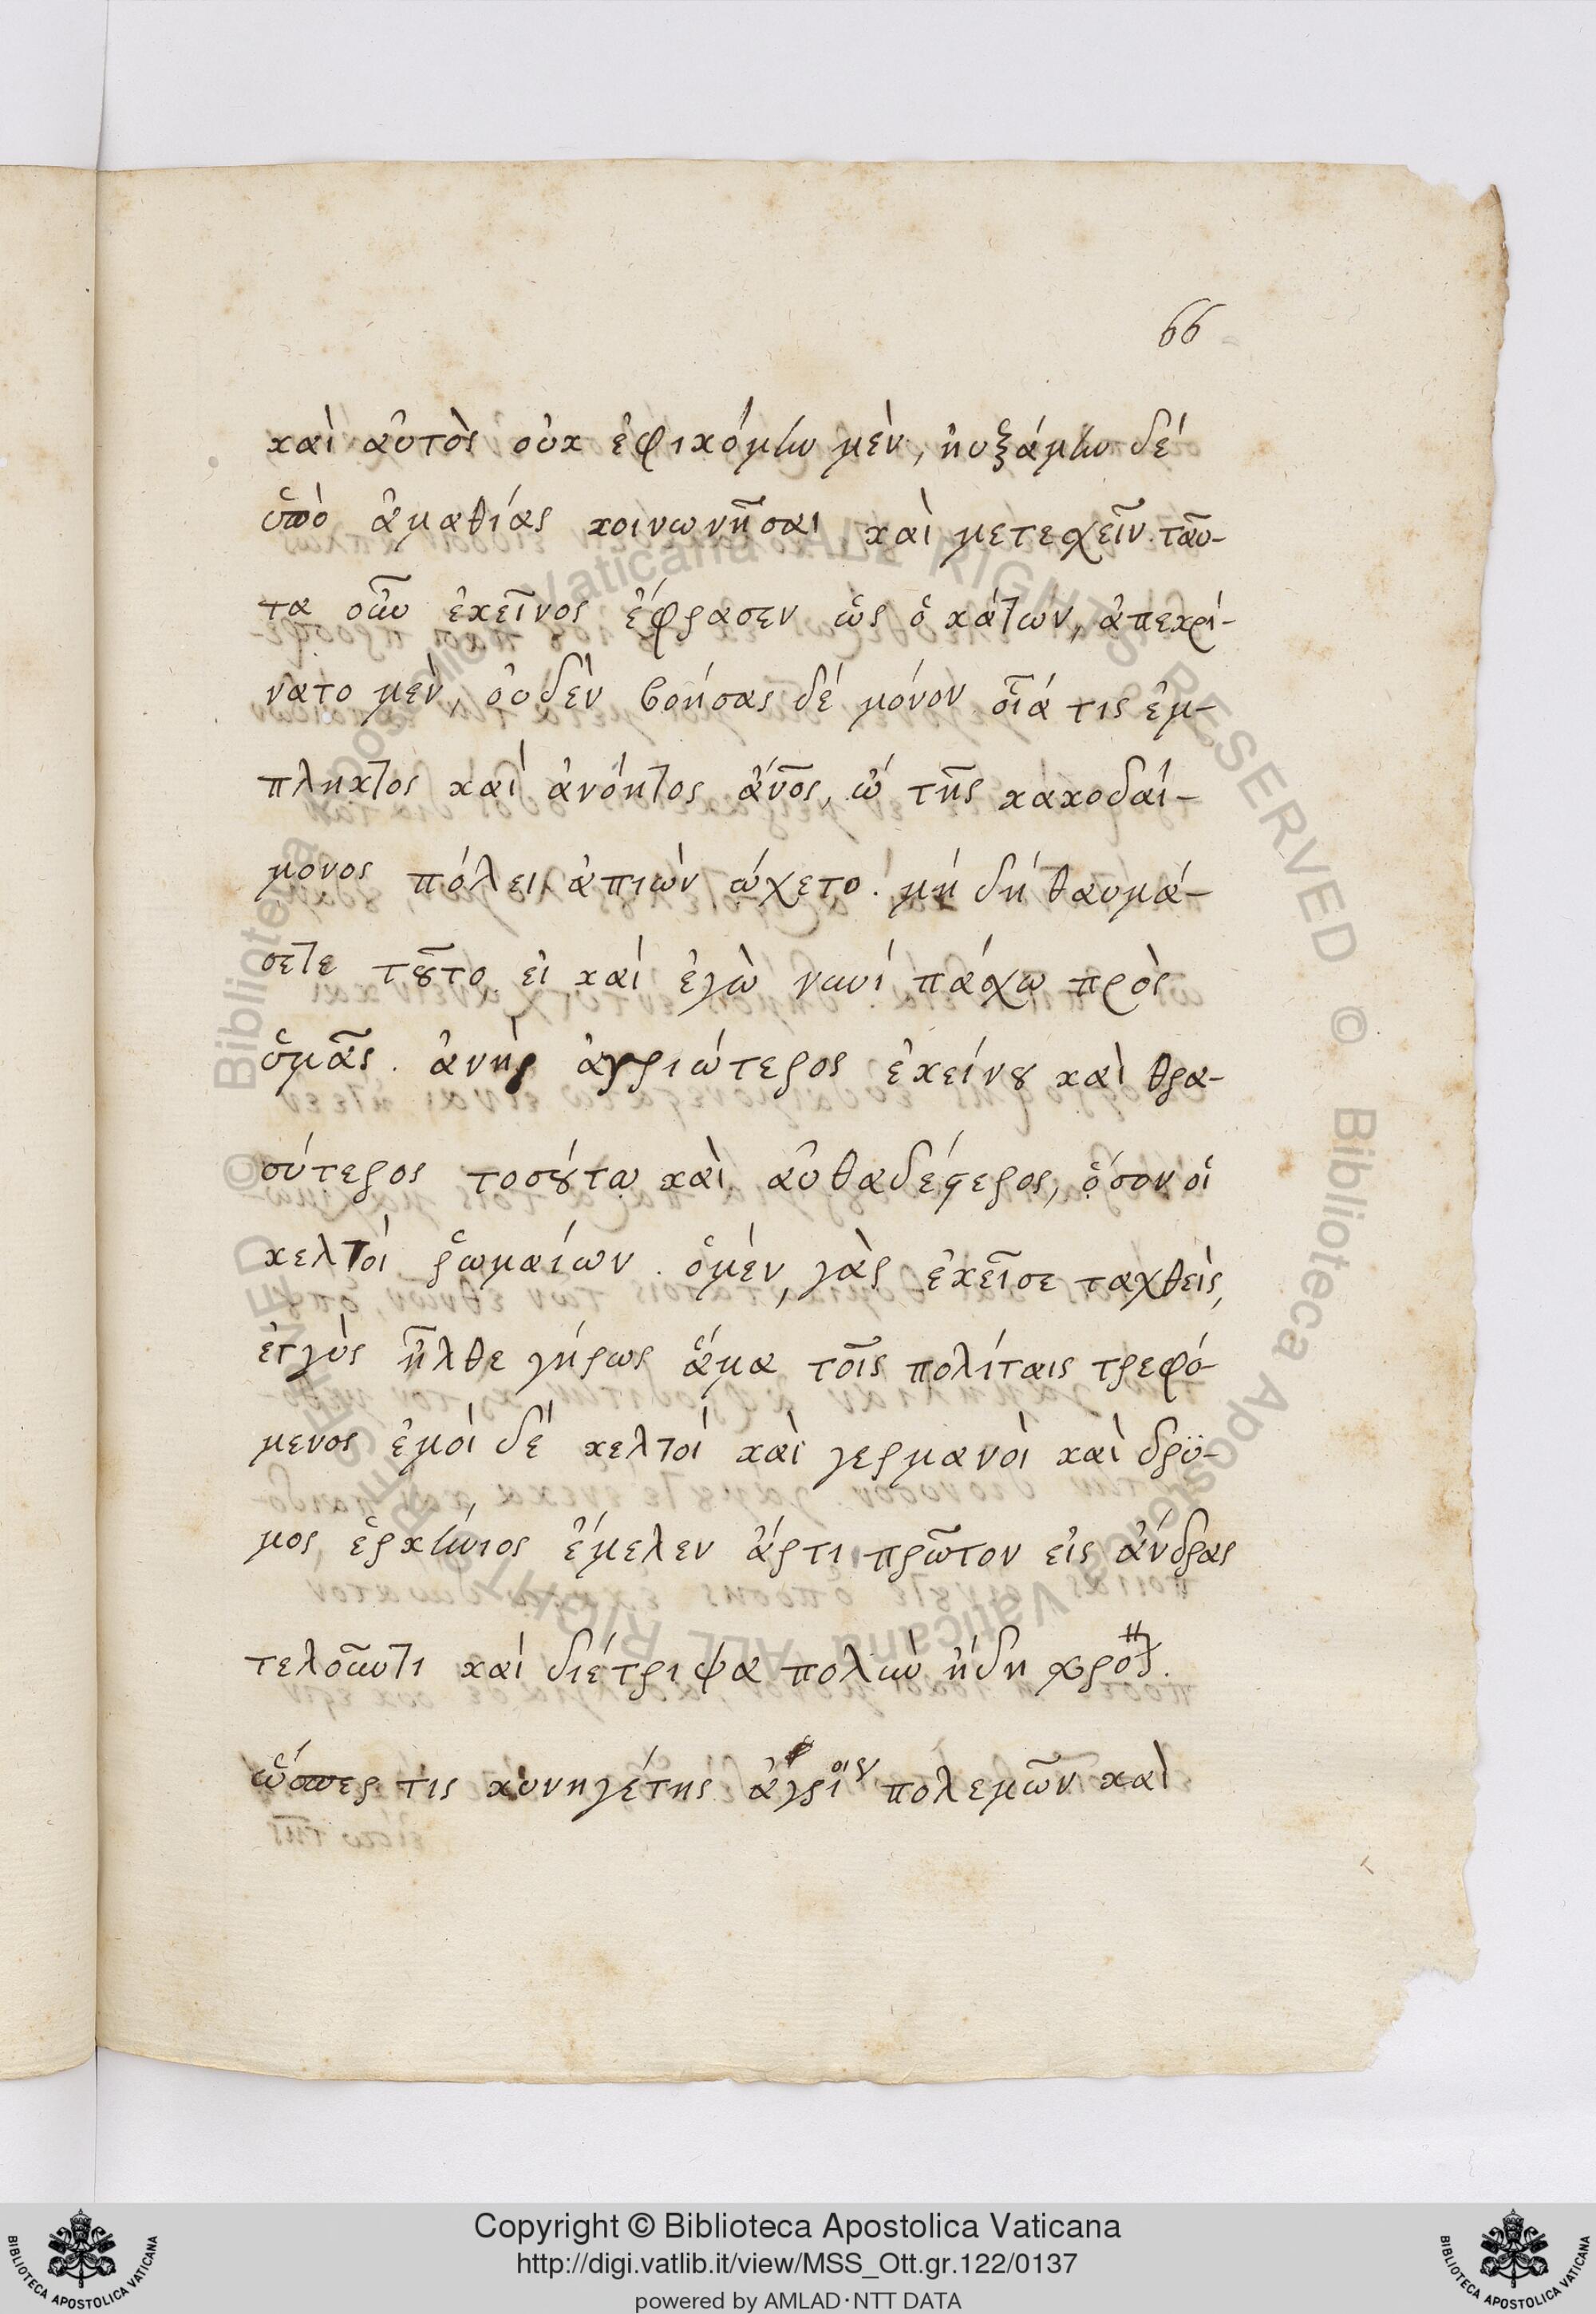 66
καὶ αὐτὸς οὐκ ἐφικόμην μὲν, ηὐξάμην δέ
ὑπὸ ἀμαθίας κοινωνῆσαι καὶ μετεχεῖν ταῦ-
τα οὖν ἐκεῖνος ἔφρασεν ὡς ὁ κάτων, ἀπεκρί-
νατο μὲν, οὐδὲν βοήσας δέ μόνον οἷά τις ἐμ-
πληκτος καὶ ἀνόητος ἄν̅ο̅ς, ὢ τῆς κακοδαί-
μονος πόλει ἀπιὼν ὤχετο. μή δή θαυμά-
σετε τοῦτο εἰ καὶ ἐγὼ νυνί πάσχω πρὸς
ὑμᾶς. ἀνὴρ ἀγριώτερος ἐκείνου καὶ θρα-
σύτερος τοσούτω καὶ αὐθαδέστερος, ὅσον οἱ
κελτοὶ ῥωμαίων. ὁμὲν, γὰρ ἐκεῖσε ταχθεὶς,
ἐγγὺς ἦλθε γήρως ἅμα τοῖς πολίταις τρεφό-
μενος ἐμοὶ δὲ κελτοὶ καὶ γερμανοὶ καὶ δρϋ-
μος ἑρκύνιος ἔμελεν ἄρτι πρῶτον εἰς ἄνδρας
τελοῦντι καὶ διέτριψα πολὺν ἤδη χρό.
ὥσπερ τις κυνηγέτης ἀγρίοις πολεμῶν καὶ
Copyright © Biblioteca Apostolica Vaticana
http://digi.vatlib.it/view/MSS_Ott.gr.122/0137
powered by AMLAD·NTT DATA